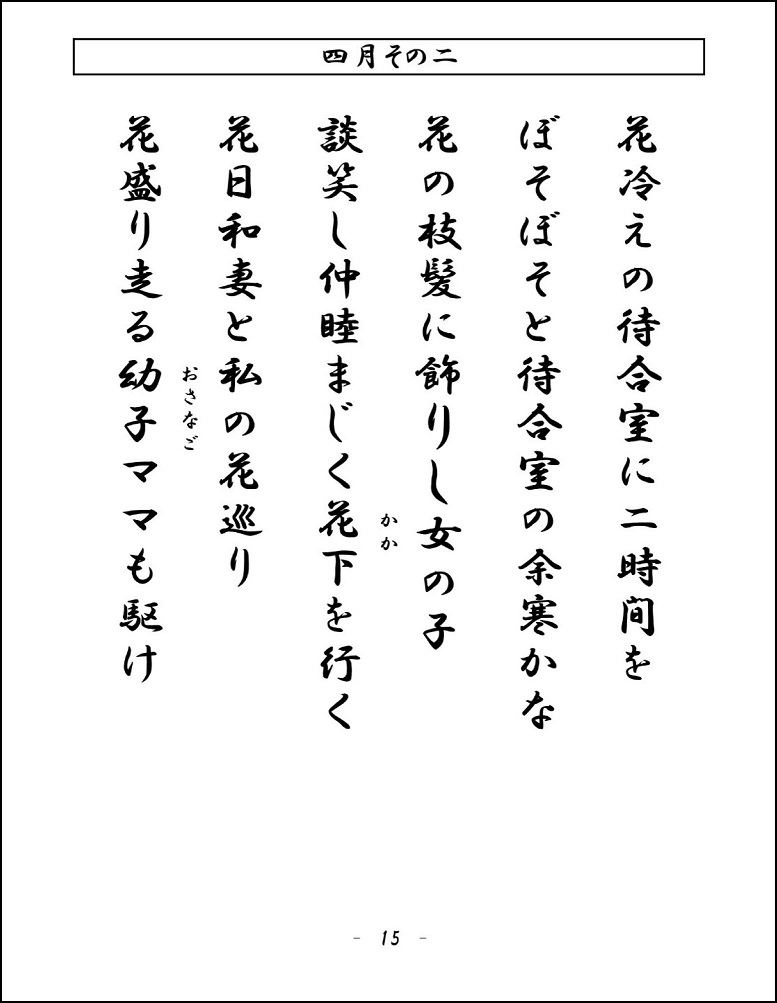 四月その二
花冷えの待合室に二時間を
ぼそぼそと待合室の余寒かな
花の枝髪に飾りし女の子
談笑し仲睦まじく花下を行く
かか
花日和妻と私の花巡り
花盛り走る幼子ママも駆け
おさなご
- 15 -